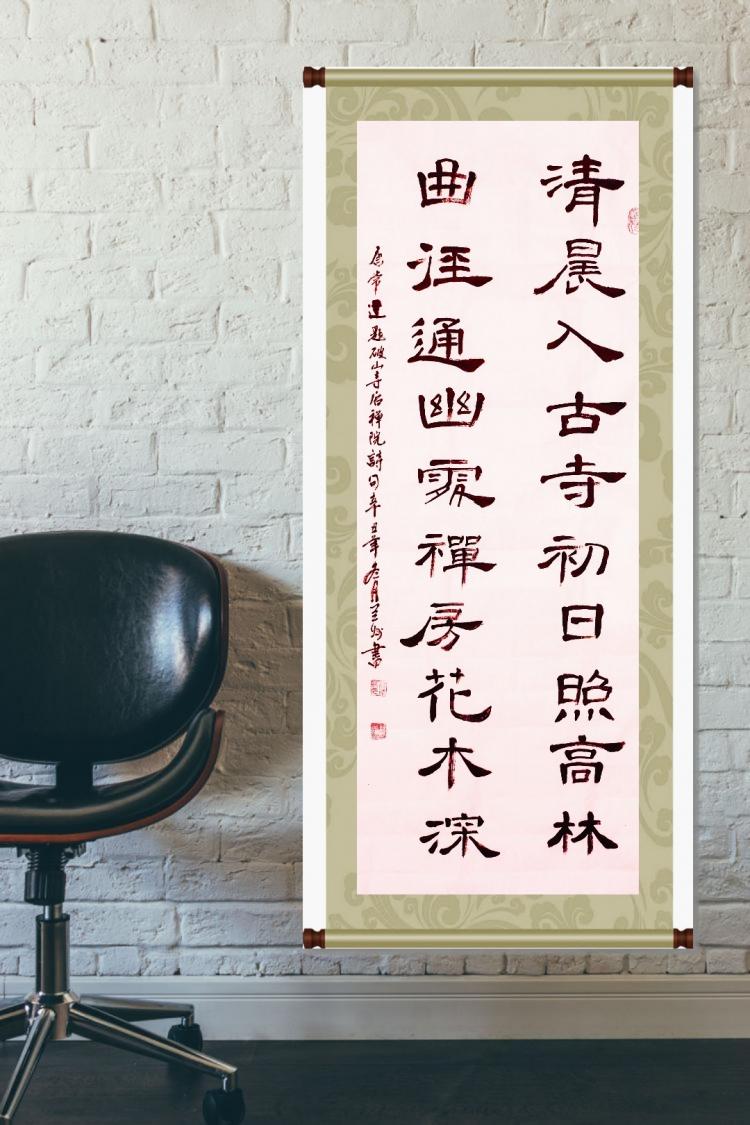 清晨入古寺初日照高林
曲径通幽處禪房花木深
常建題破山寺后禪院詩句辛丑年冬月兰州書